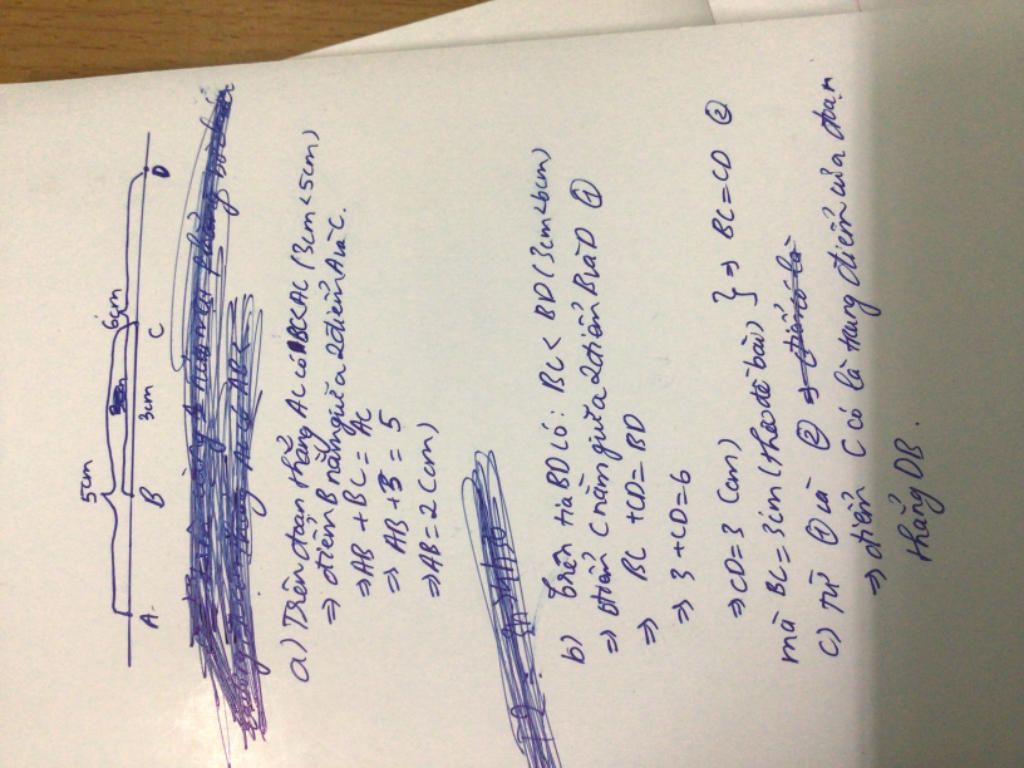 5cm
6cm
3cm
A B C D
a) Trên đoạn thẳng AC có BC<AC (3cm<5cm)
⇒ điểm B nằm giữa 2 điểm A và C.
⇒ AB + BC = AC
⇒ AB + 3 = 5
⇒ AB = 2 (cm)
b) trên tia BD có: BC < BD (3cm<6cm)
⇒ điểm C nằm giữa 2 điểm B và D ①
⇒ BC + CD = BD
⇒ 3 + CD = 6
⇒ CD = 3 (cm)
mà BC = 3cm (theo đề bài) } ⇒ BC = CD ②
c) từ ① và ②
⇒ điểm C có là trung điểm của đoạn
thẳng DB.